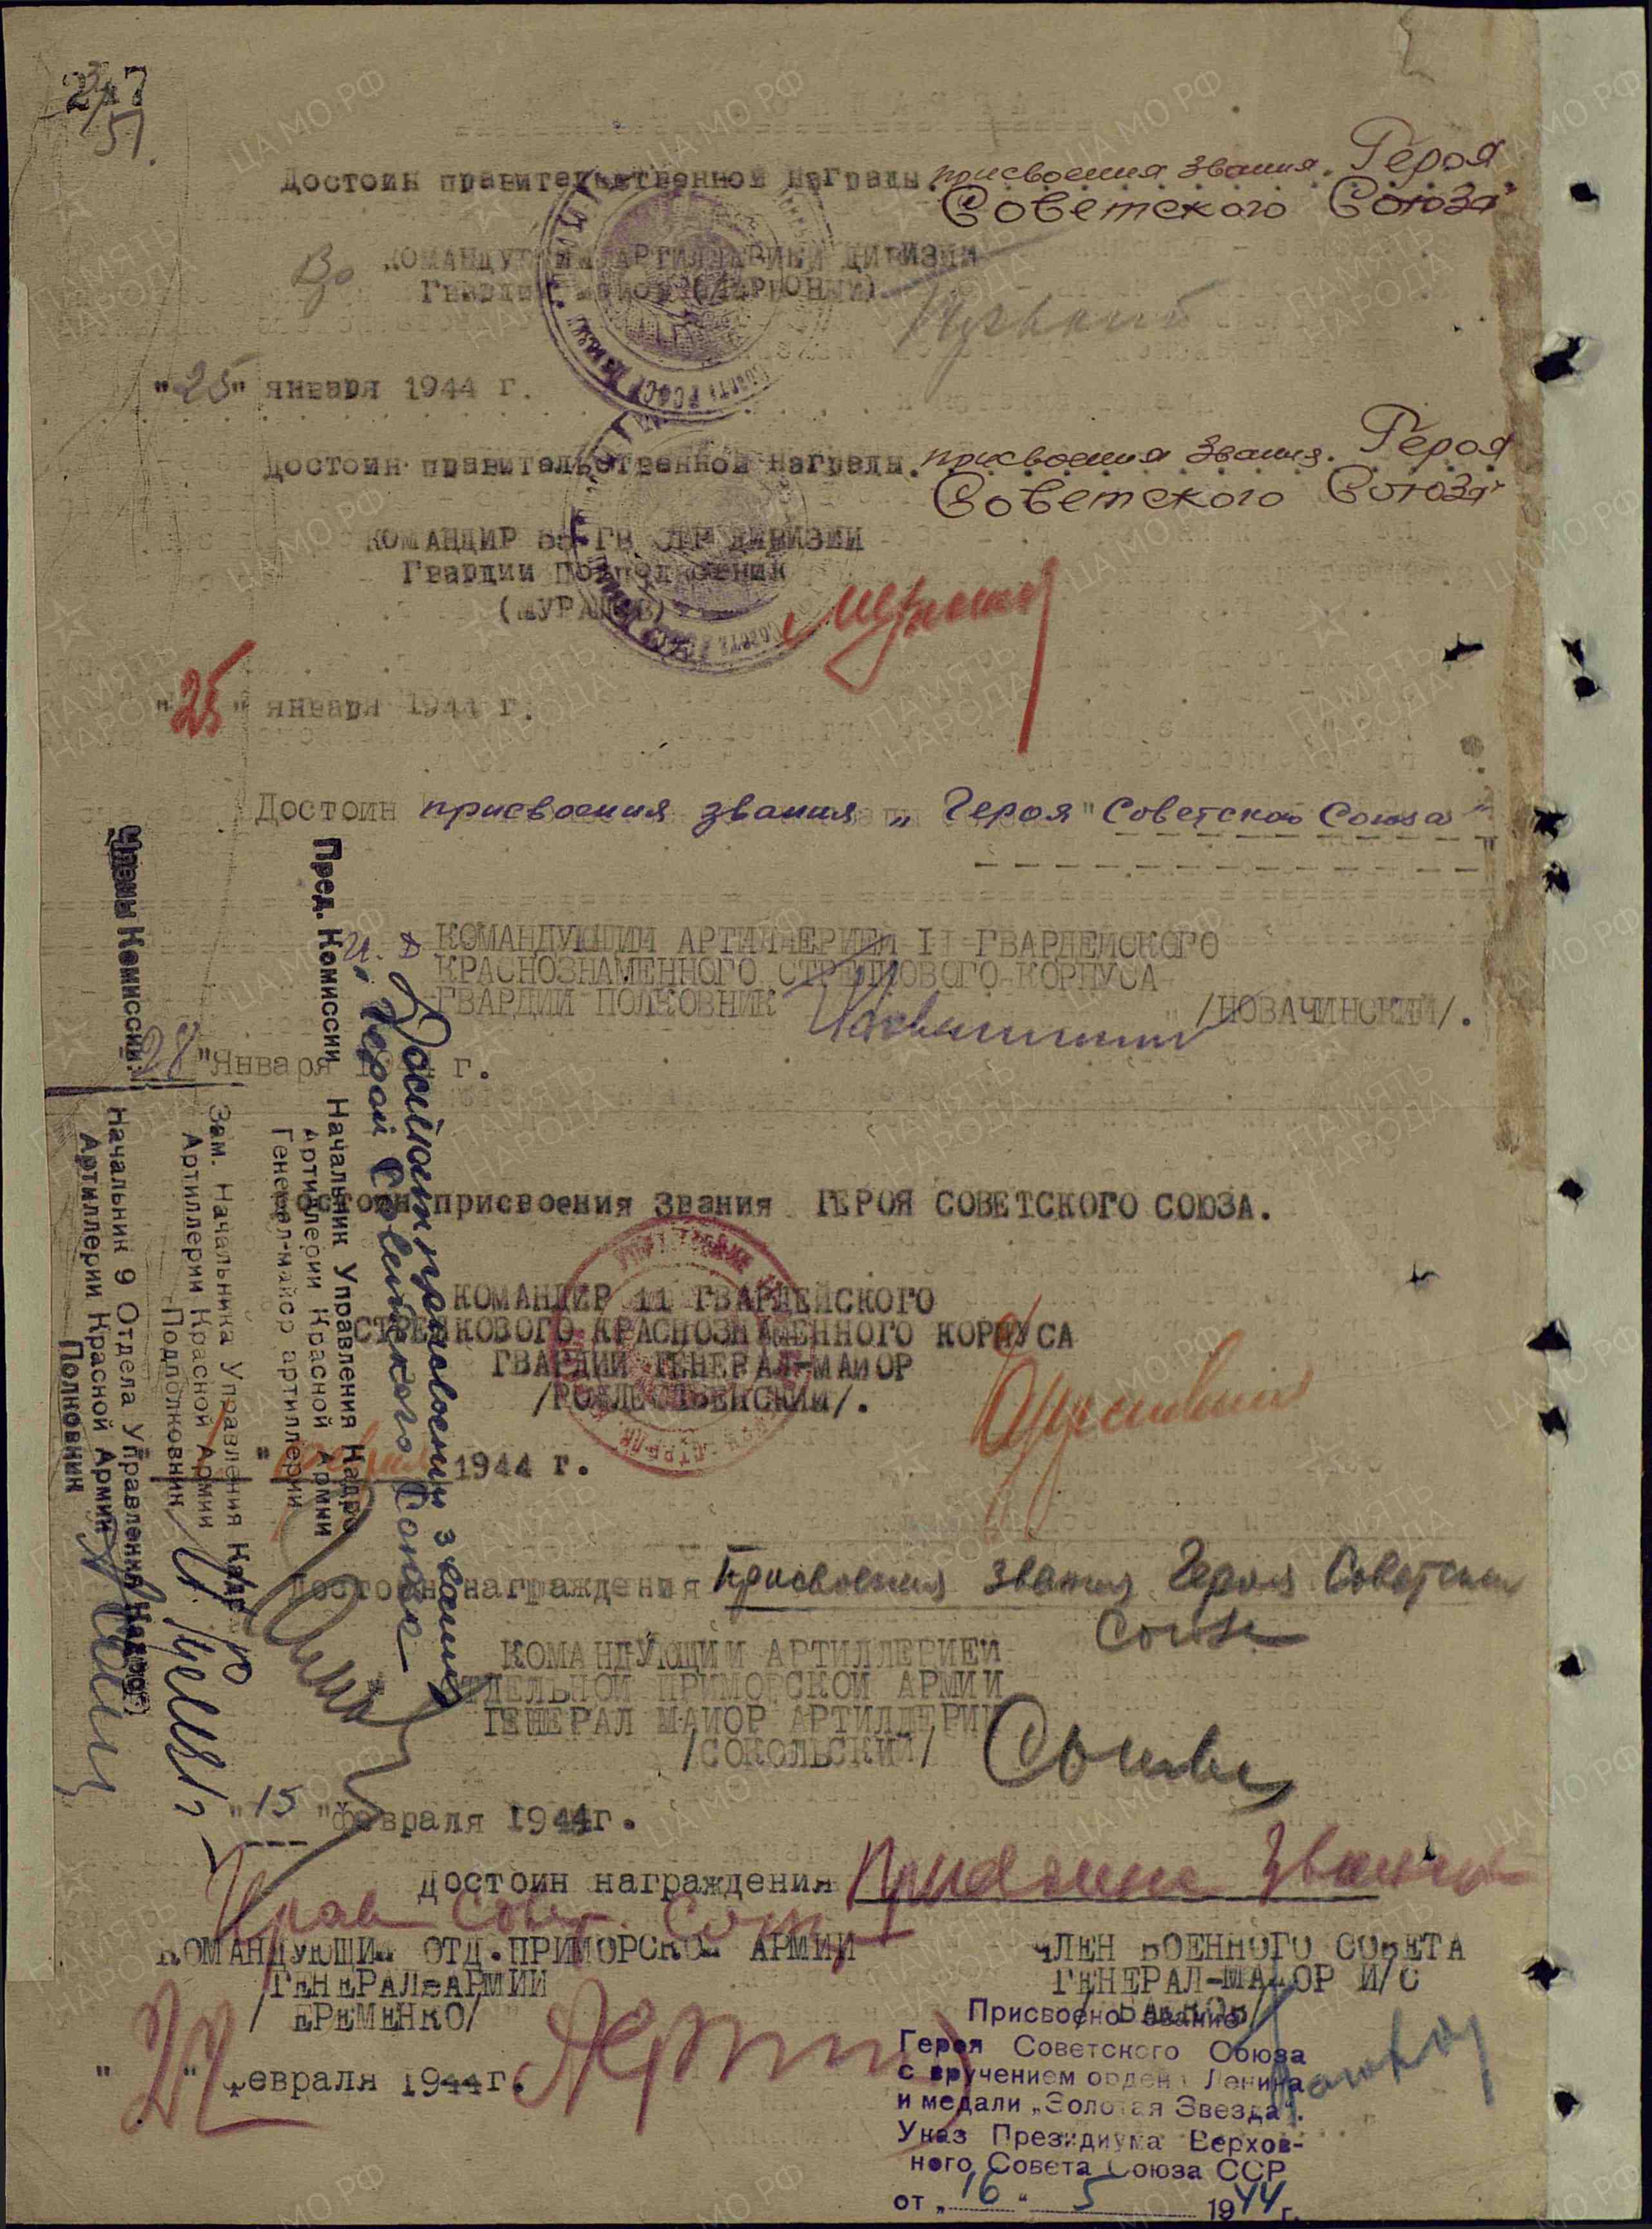 247
51.
Достоин правительственной награды. присвоения звания. Героя
Советского Союза
Во КОМАНДУЮЩИЙ АРТИЛЛЕРИЕЙ ДИВИЗИИ
Гвардии
"25" января 1944 г.
Достоин правительственной награды. присвоения звания. Героя
Советского Союза
КОМАНДИР 55 ГВ СТР ДИВИЗИИ
Гвардии Подполковник
"25" января 1944 г.
Достоин присвоения звания „Героя" Советского Союза"
И. Д. КОМАНДУЮЩИЙ АРТИЛЛЕРИЕЙ II ГВАРДЕЙСКОГО
КРАСНОЗНАМЕННОГО СТРЕЛКОВОГО КОРПУСА
ГВАРДИИ ПОЛКОВНИК /НОВАЧИНСКИЙ/.
28 "Января г.
Достоин присвоения Звания ГЕРОЯ СОВЕТСКОГО СОЮЗА.
КОМАНДИР 11 ГВАРДЕЙСКОГО
СТРЕЛКОВОГО КРАСНОЗНАМЕННОГО КОРПУСА
ГВАРДИИ ГЕНЕРАЛ-МАЙОР
/РОЖДЕСТВЕНСКИЙ/.
1944 г.
Достоин награждения Присвоения звания Героя Советским
Союза
КОМАНДУЮЩИЙ АРТИЛЛЕРИЕЙ
ОТДЕЛЬНОЙ ПРИМОРСКОЙ АРМИИ
ГЕНЕРАЛ МАЙОР АРТИЛЛЕРИИ
/СОКОЛЬСКИЙ/
"15 "февраля 1944г.
Достоин награждения звания
Совет. Союза
КОМАНДУЮЩИЙ ОТД.ПРИМОРСКОЙ АРМИИ
ГЕНЕРАЛ=АРМИИ
/ ЕРЕМЕНКО/
" 22 " февраля 1944г.
ЧЛЕН ВОЕННОГО СОВЕТА
ГЕНЕРАЛ-МАЙОР И/С
Присвоено звание
Героя Советского Союза
с вручением ордена Ленина
и медали „Золотая Звезда".
Указ Президиума Верхов-
ного Совета Союза ССР
от „16" 5 1944 г.
Достоин присвоения звания
Герой Советского Союза
Пред. Комиссии Начальник Управления Кадров
Артиллерии Красной Армии
Генерал-майор артиллерии
Члены Комиссии:
Зам. Начальника Управления Кадров
Артиллерии Красной Армии
Подполковник
Начальник 9 Отдела Управления Кадров
Артиллерии Красной Армии
Полковник
ЦА МО РФ
ПАМЯТЬ
НАРОДА